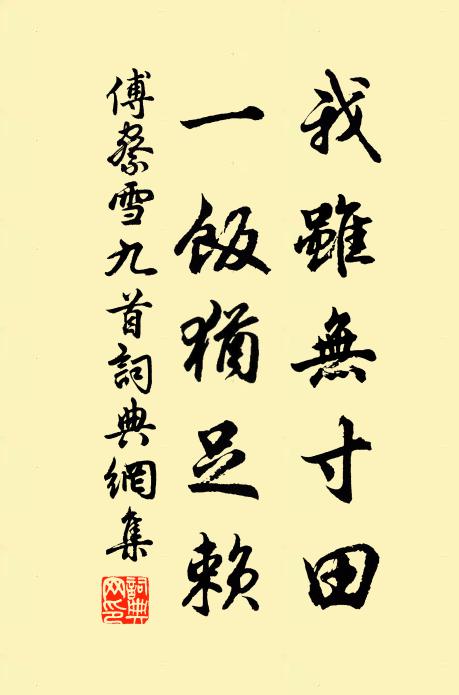 我雖無寸田
一飯猶足賴
傅察雪九首詞典網集
詞典
网印